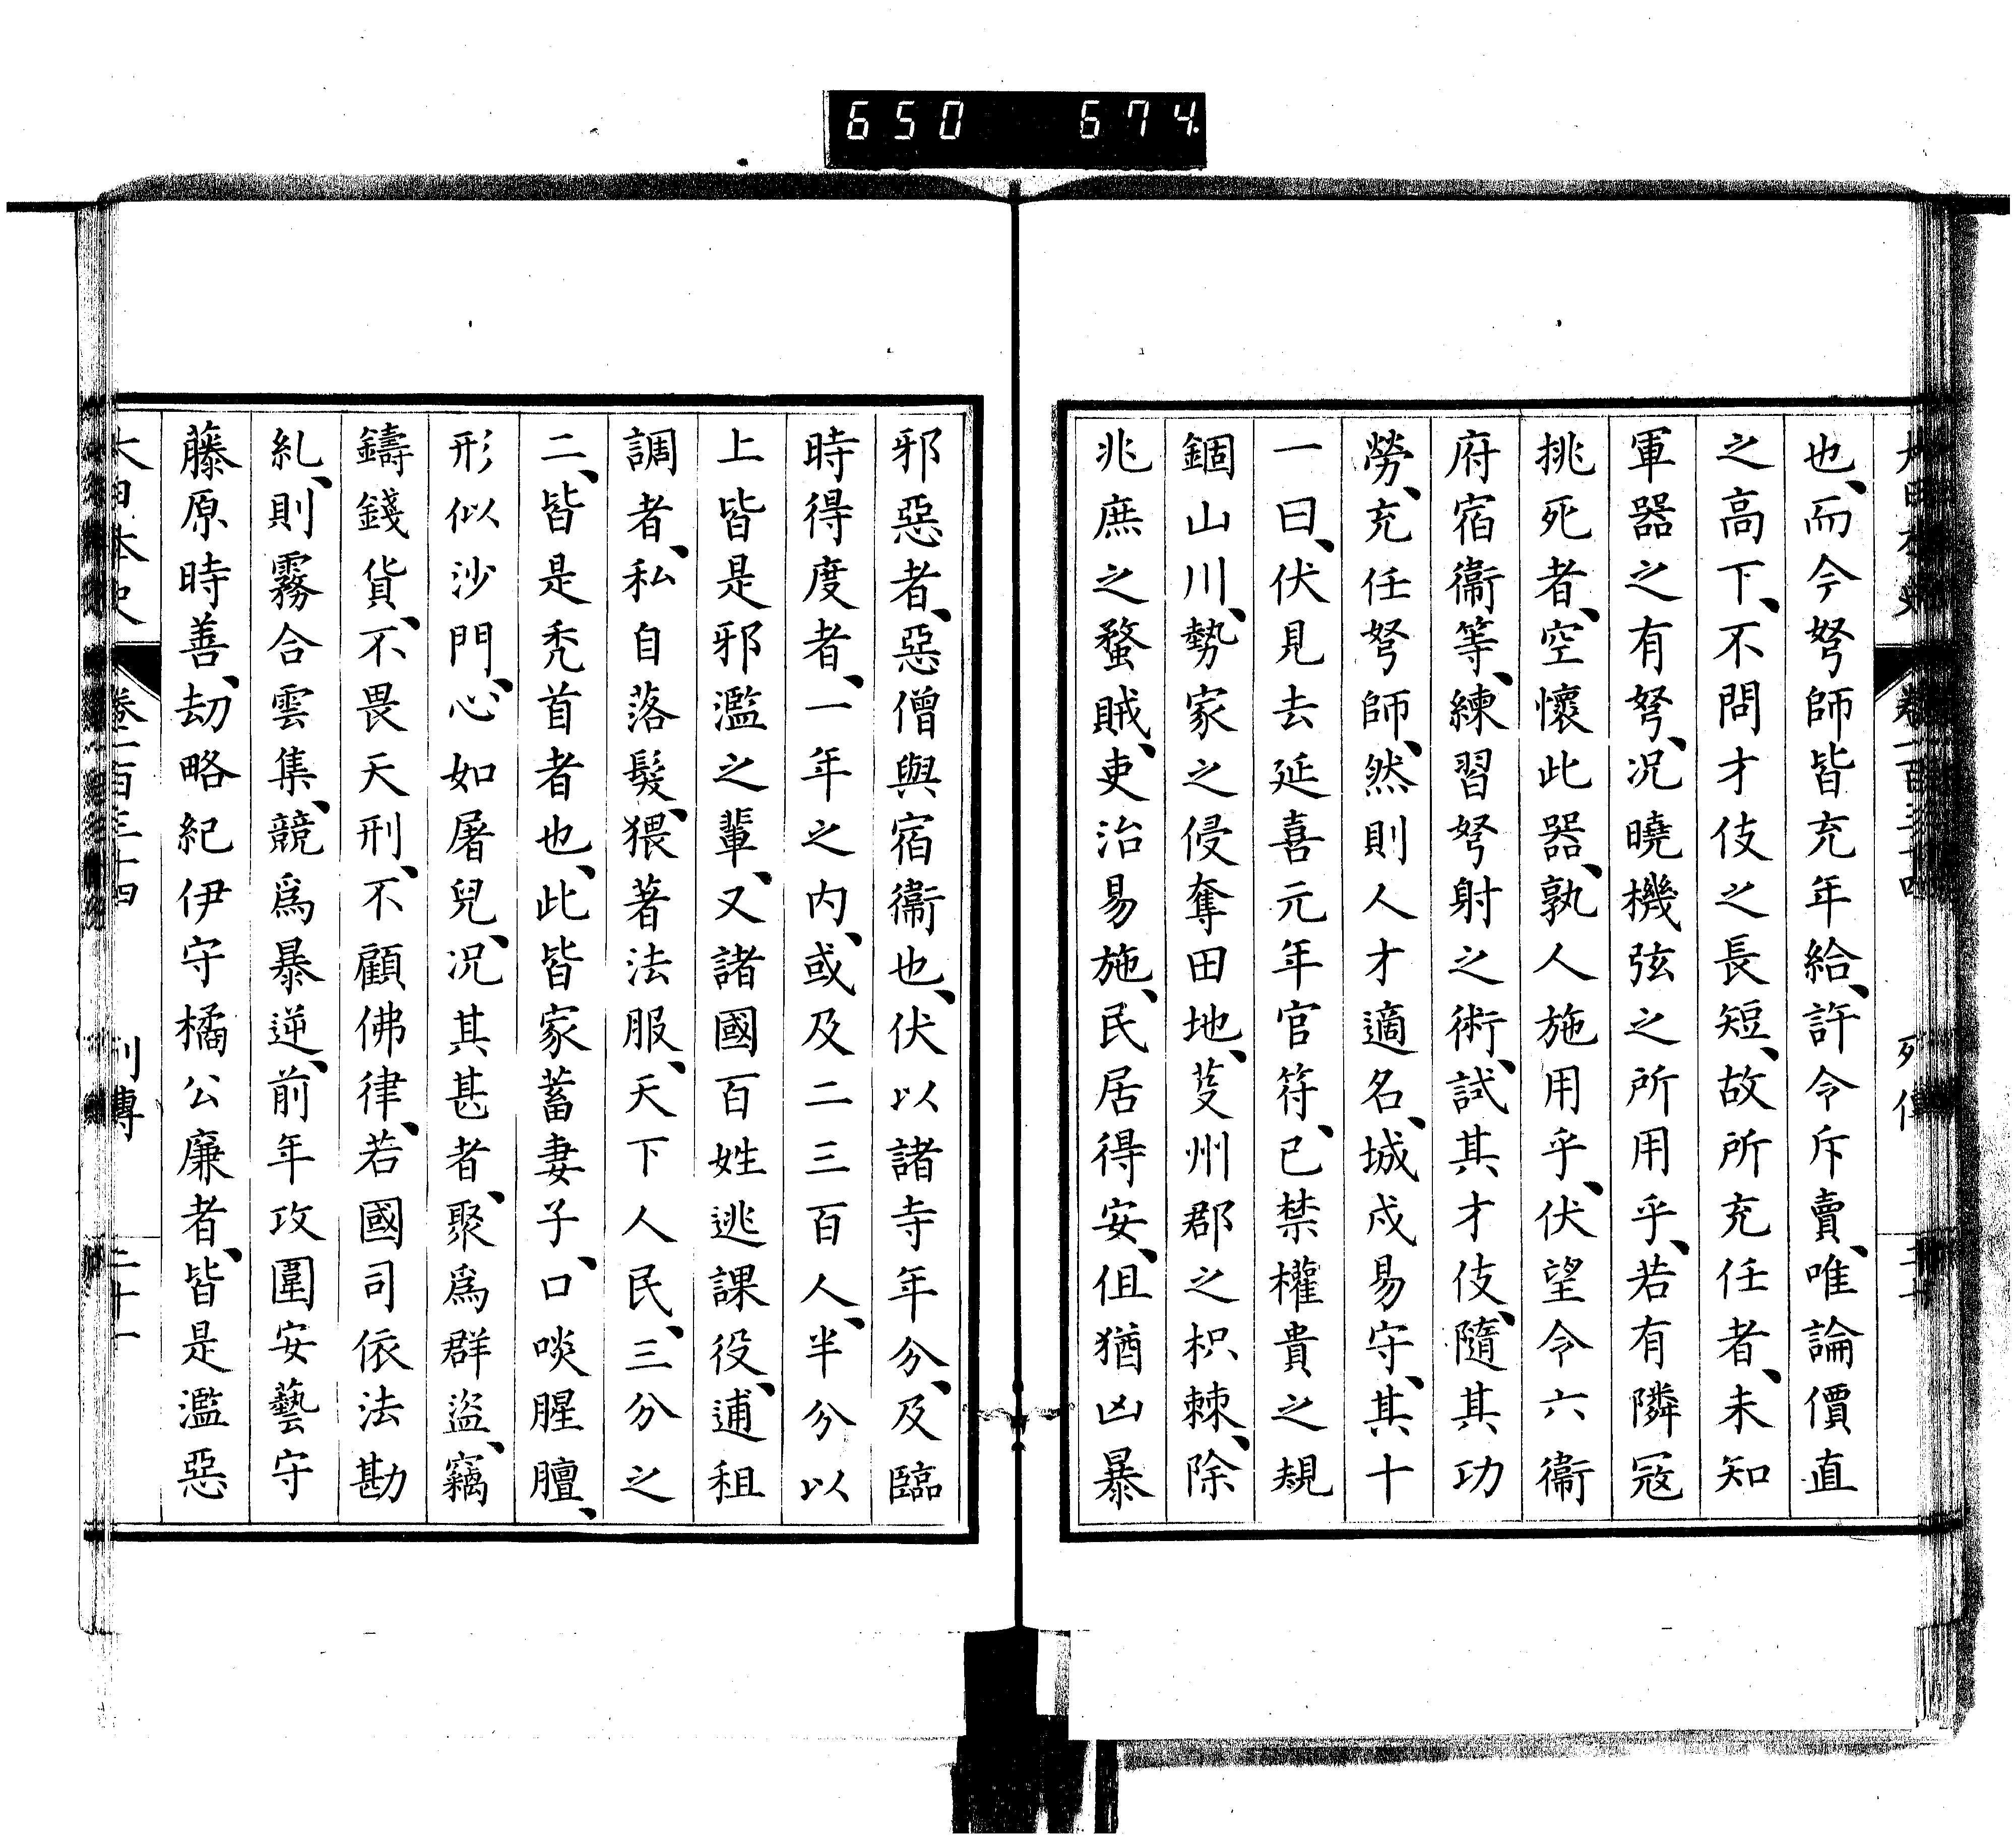 650 674
也、而今弩師皆充年給、許令斥賣、唯論價直
之高下、不問才伎之長短、故所充任者、未知
軍器之有弩、況曉機弦之所用乎、若有隣寇
挑死者、空懷此器、孰人施用乎、伏望令六衞
府宿衞等、練習弩射之術、試其才伎、隨其功
勞、充任弩師、然則人才適名、城戍易守、其十
一曰、伏見去延喜元年官符、已禁權貴之規
錮山川、勢家之侵奪田地、芟州郡之枳棘、除
兆庶之蝥賊、吏治易施、民居得安、但猶凶暴
邪惡者、惡僧與宿衞也、伏以諸寺年分、及臨
時得度者、一年之内、或及二三百人、半分以
上皆是邪濫之輩、又諸國百姓逃課役、逋租
調者、私自落髮、猥著法服、天下人民、三分之
二、皆是禿首者也、此皆家蓄妻子、口啖腥膻、
形似沙門、心如屠兒、況其甚者、聚爲群盜、竊
鑄錢貨、不畏天刑、不顧佛律、若國司依法勘
糺、則霧合雲集、競爲暴逆、前年攻圍安藝守
藤原時善、劫略紀伊守橘公廉者、皆是濫惡
大日本史 卷二百三十四 列傳 二十一